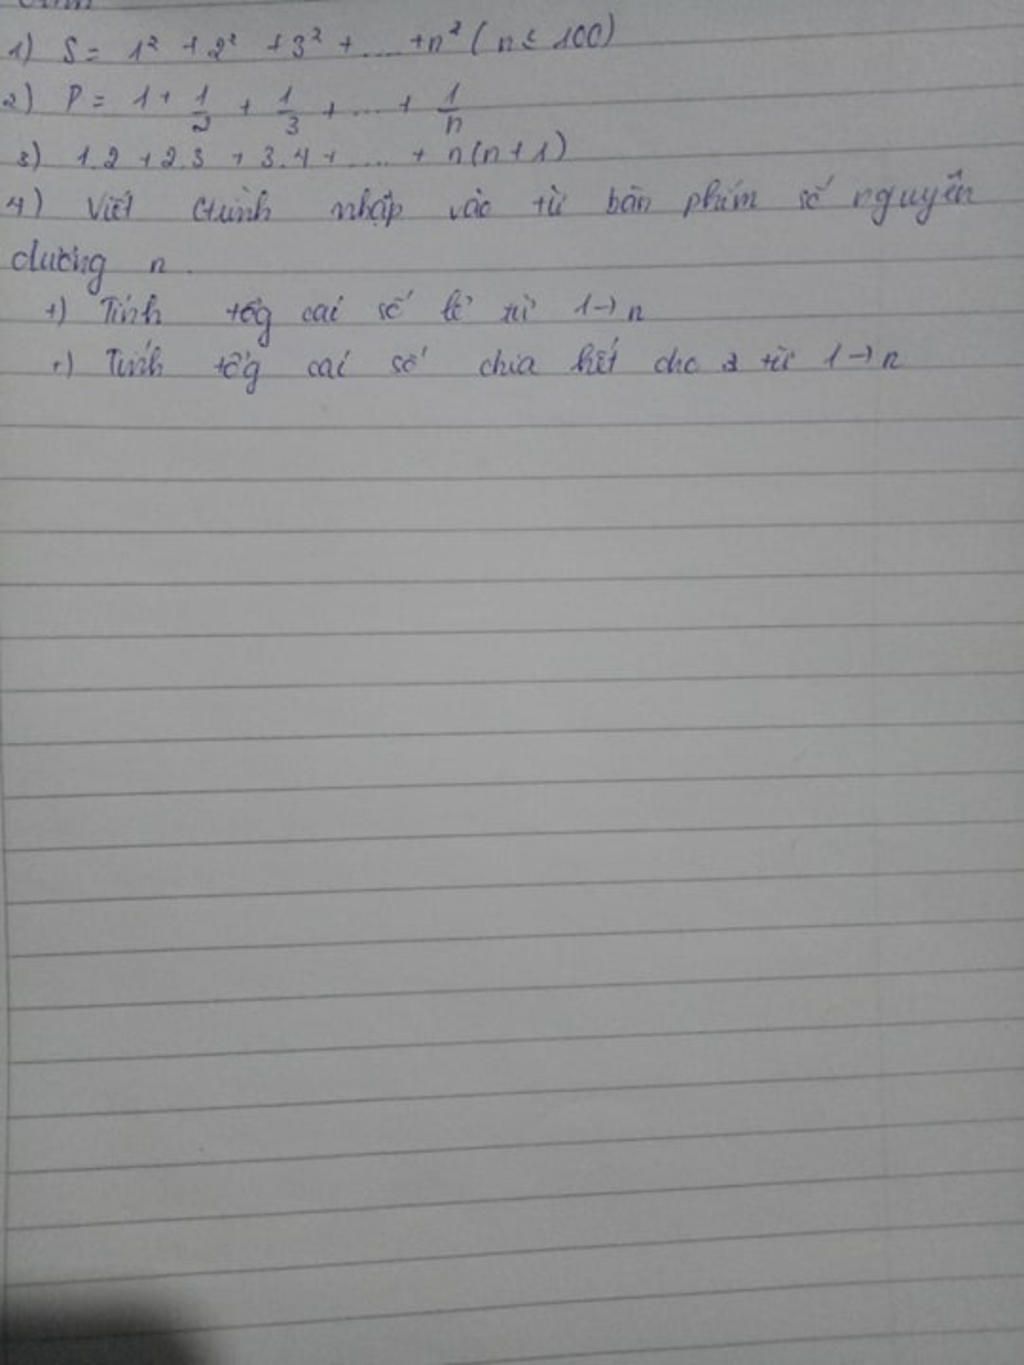 1) S = 1² + 2² + 3² + .... + n² ( n ≤ 100)
2) P = 1 + 1/2 + 1/3 + ... + 1/n
3) 1.2 + 2.3 + 3.4 + .... + n(n+1)
4) Viết trình nhập vào từ bàn phím số nguyên
dương n.
+) Tính tổg các số lẻ từ 1→n
+) Tính tổg các số chia hết cho 3 từ 1→n